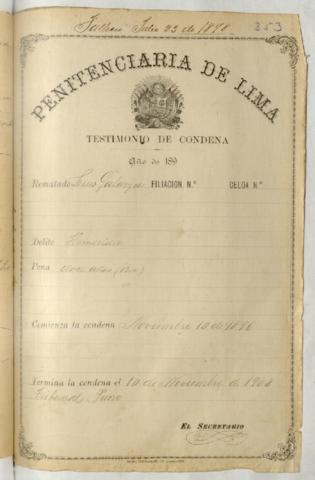 Falleció Julio 23 de 1898.
353
PENITENCIARIA DE LIMA
TESTIMONIO DE CONDENA
Año de 189
Rematado FILIACION N.º CELDA N.º
Delito Homicidio
Pena doce años
Comienza la condena Noviembre 10 de 1896
Termina la condena el 10 de Noviembre de 1908
Tribunal Puno
EL SECRETARIO